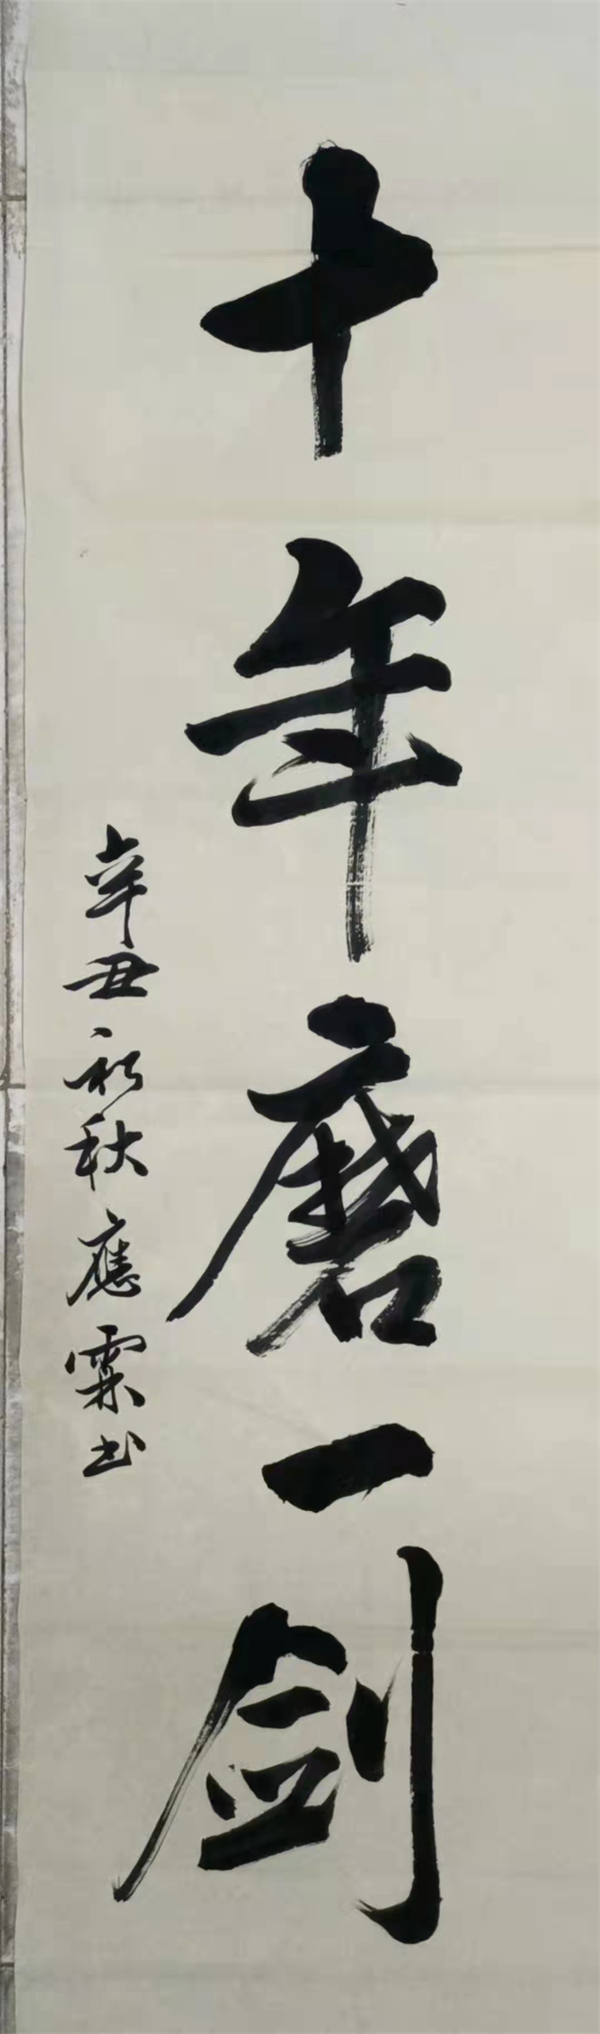 十年磨一剑
辛丑初秋應霖书